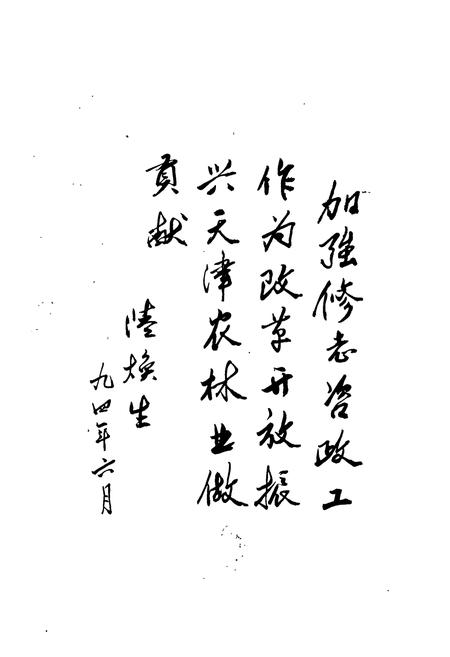 加强修志资政工
作为改革开放振
兴天津农林业做
贡献
陆焕生
九四年六月